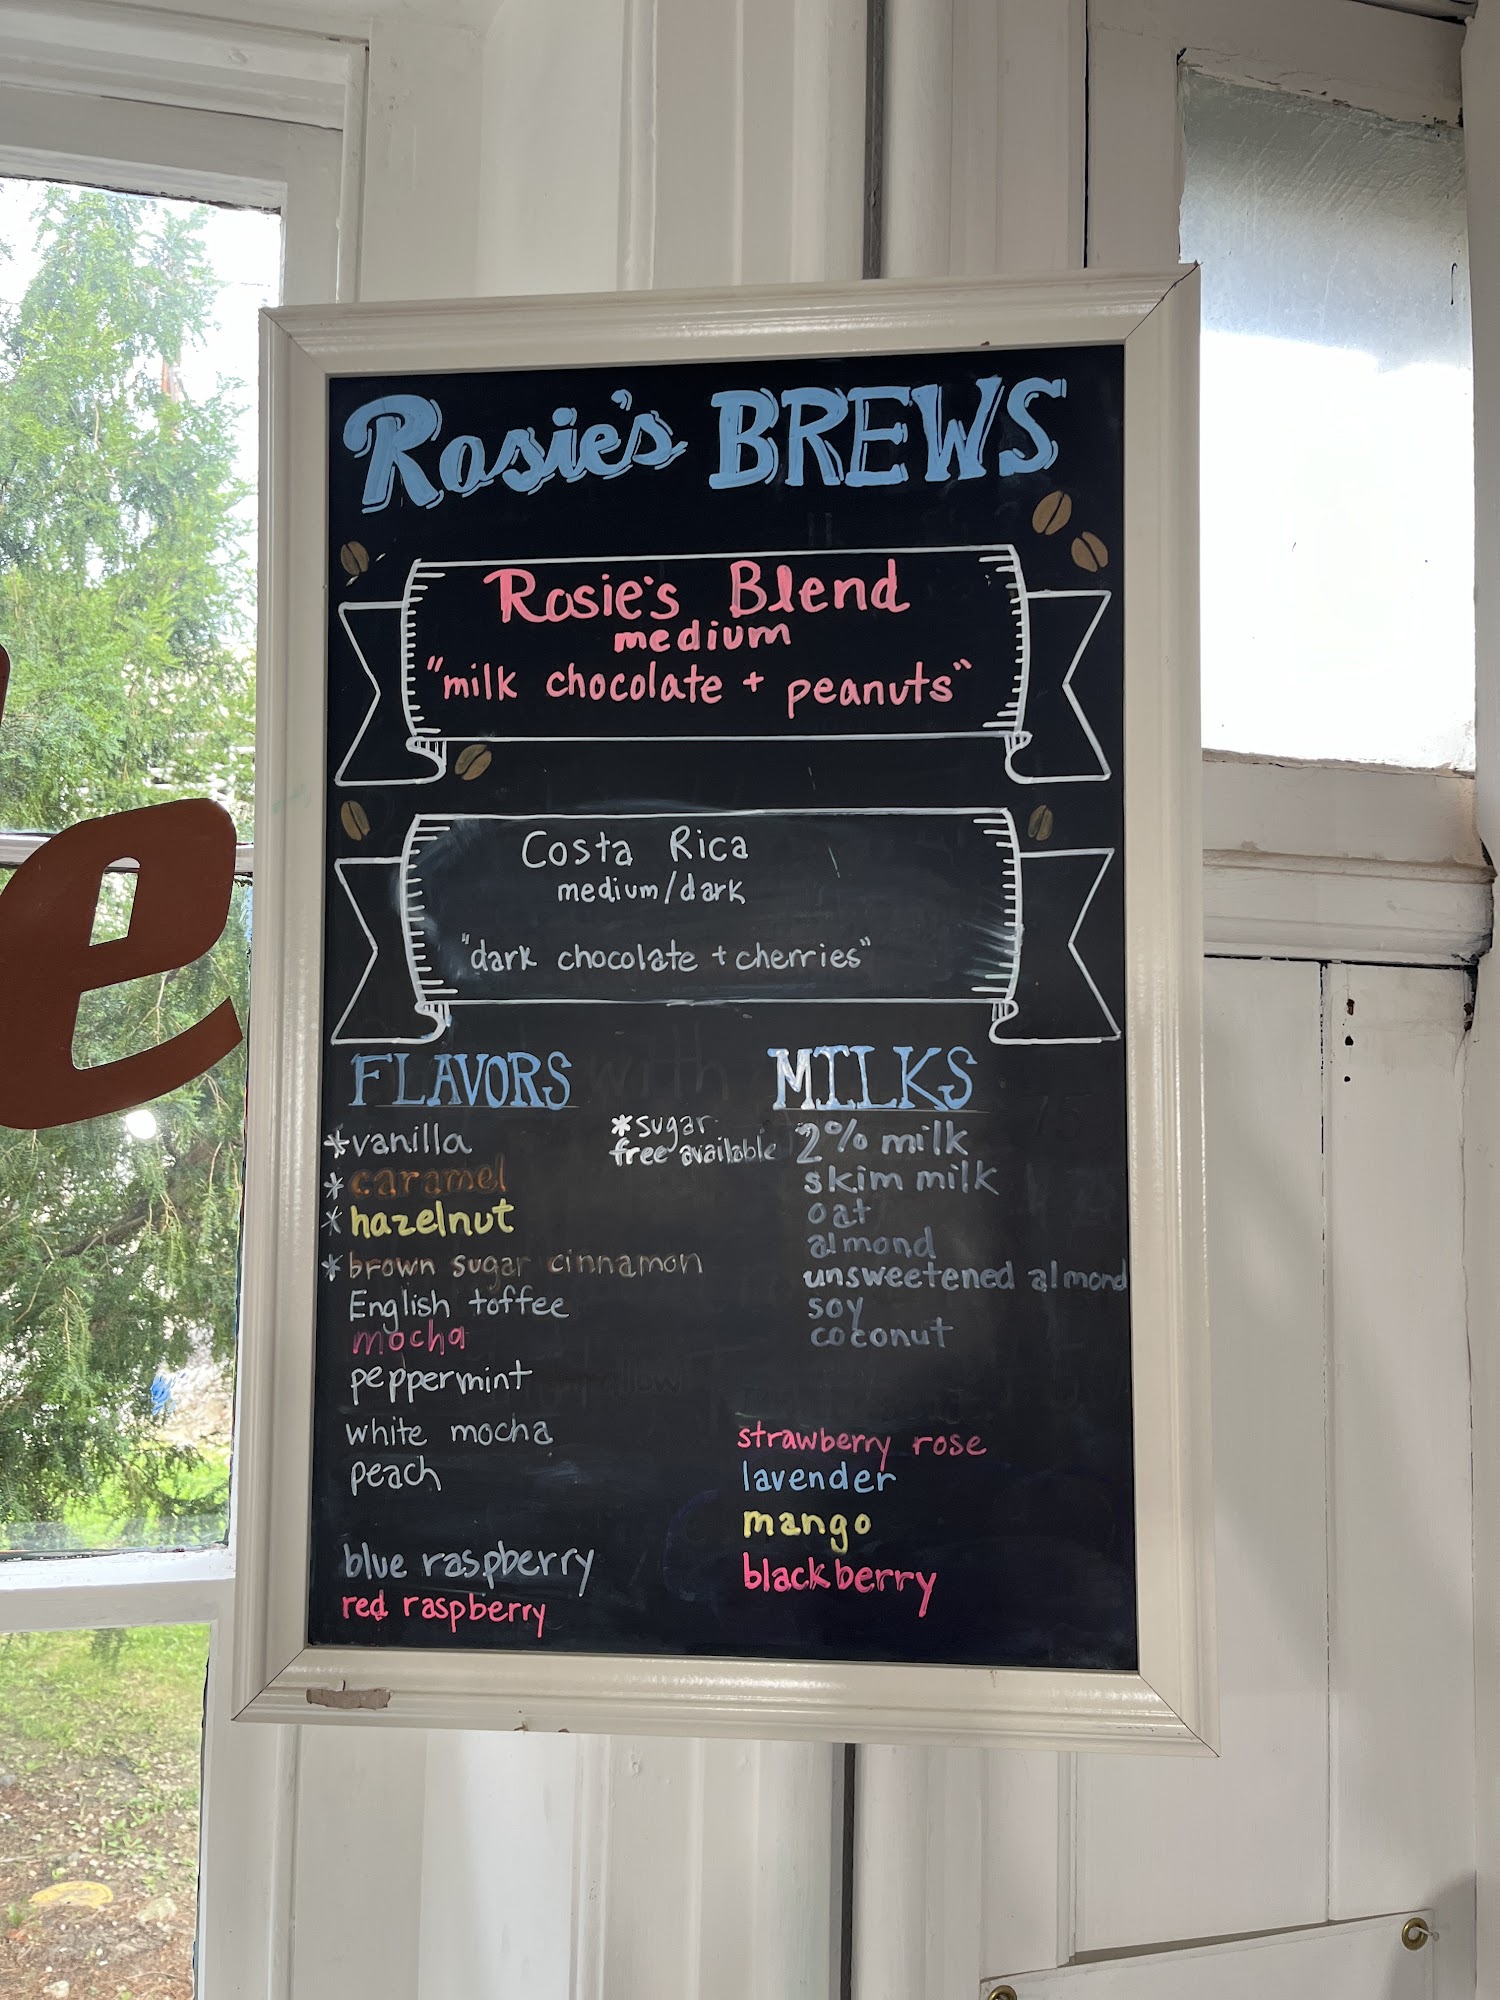 Rosie's BREWS
Rosie's Blend
medium
"milk chocolate + peanuts"
Costa Rica
medium/dark
"dark chocolate + cherries"
FLAVORS
*vanilla
*caramel
*hazelnut
*brown sugar cinnamon
English toffee
mocha
peppermint
white mocha
peach
blue raspberry
red raspberry
*sugar
free available
MILKS
2% milk
skim milk
oat
almond
unsweetened almond
soy
coconut
strawberry rose
lavender
mango
blackberry
e